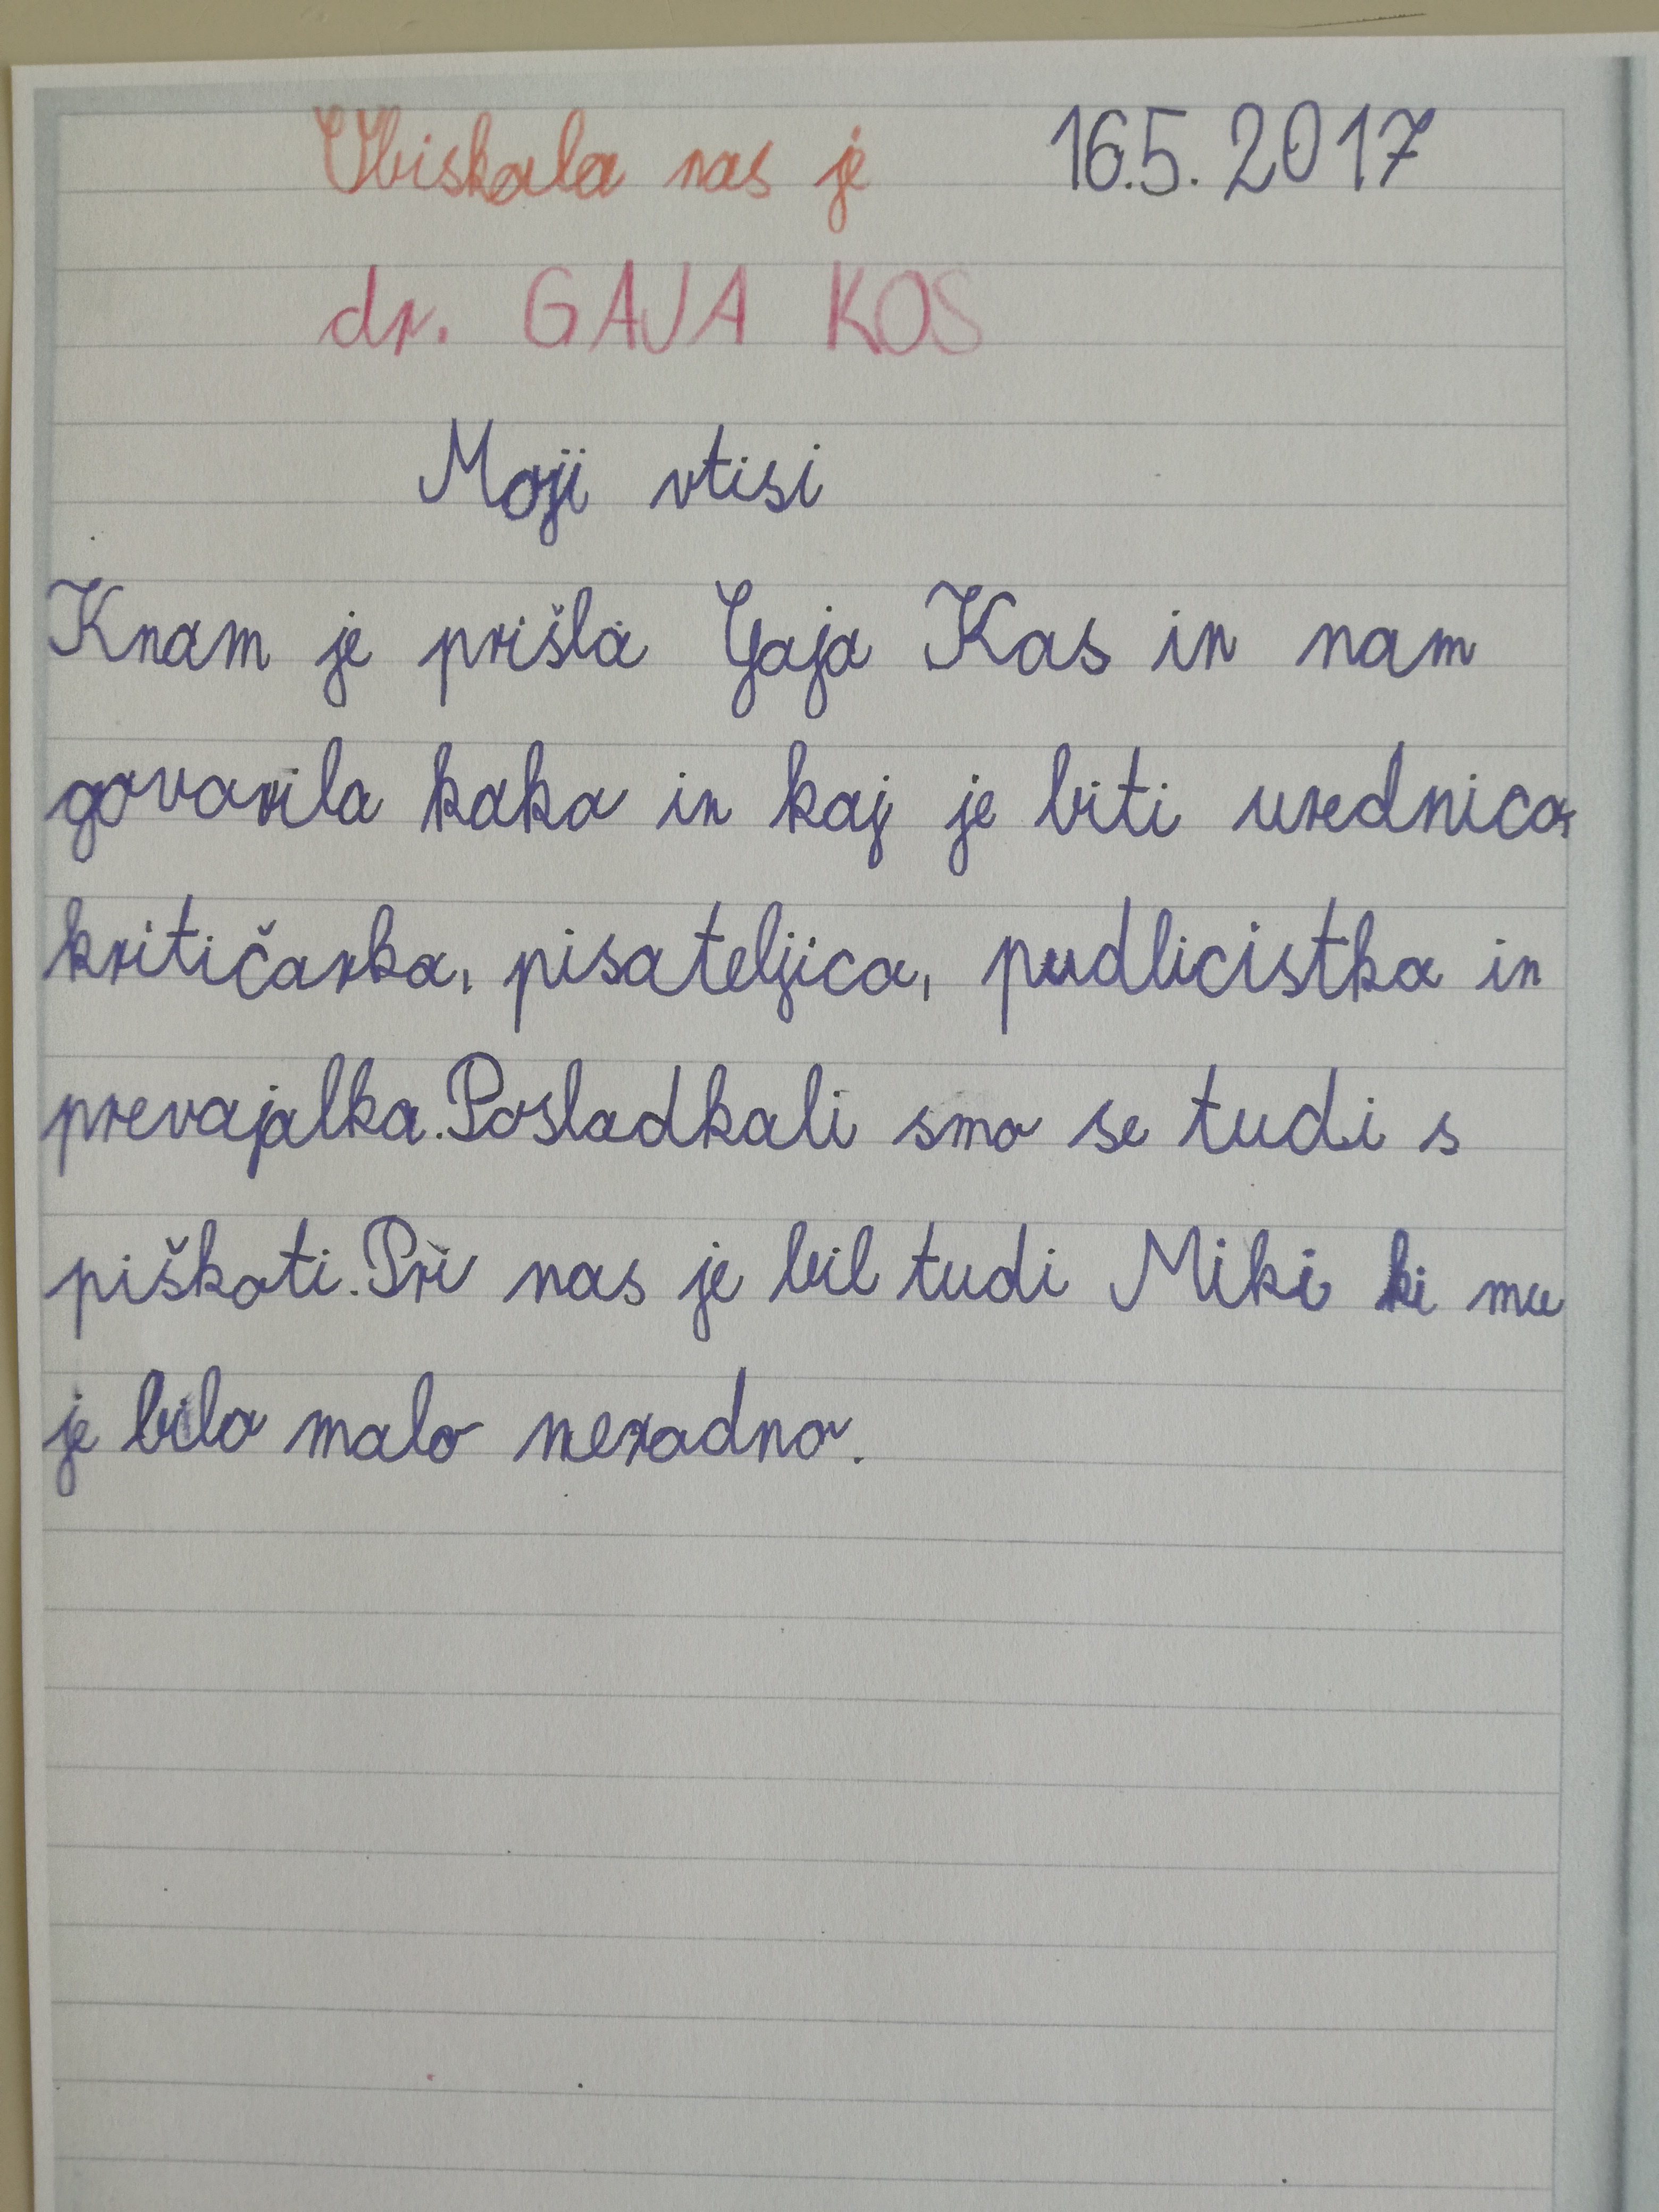 Obiskala nas je 16.5.2017
dr. GAJA KOS
Moji vtisi
Knam je prišla Gaja Kos in nam
govorila kako in kaj je biti urednica,
kritičarka, pisateljica, pudlicistka in
prevajalka. Posladkali smo se tudi s
piškoti. Pri nas je bil tudi Miki ki mu
je bilo malo nerodno.